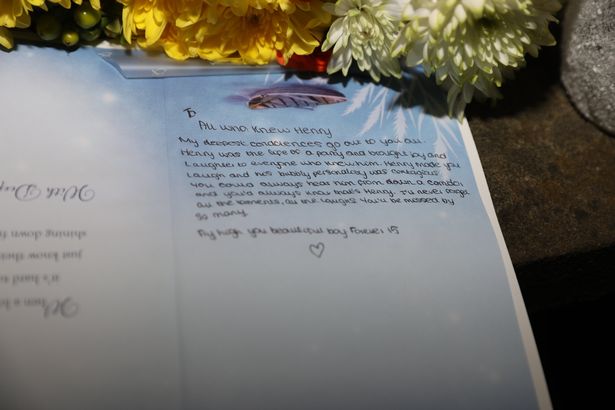 To
All who knew Henry
My deepest condolences go out to you all.
Henry was the life of a party and brought joy and
laughter to everyone who knew him. Henry made you
laugh and his bubbly personality was contagious
You could always hear him from down a corridor
and you'd always know that's Henry. I'll never forget
all the moments, all the laughs. You'll be missed by
so many.
Fly high you beautiful boy Forever 18
♡
With Deep
shining down
just know the
it's hard to
When a lo